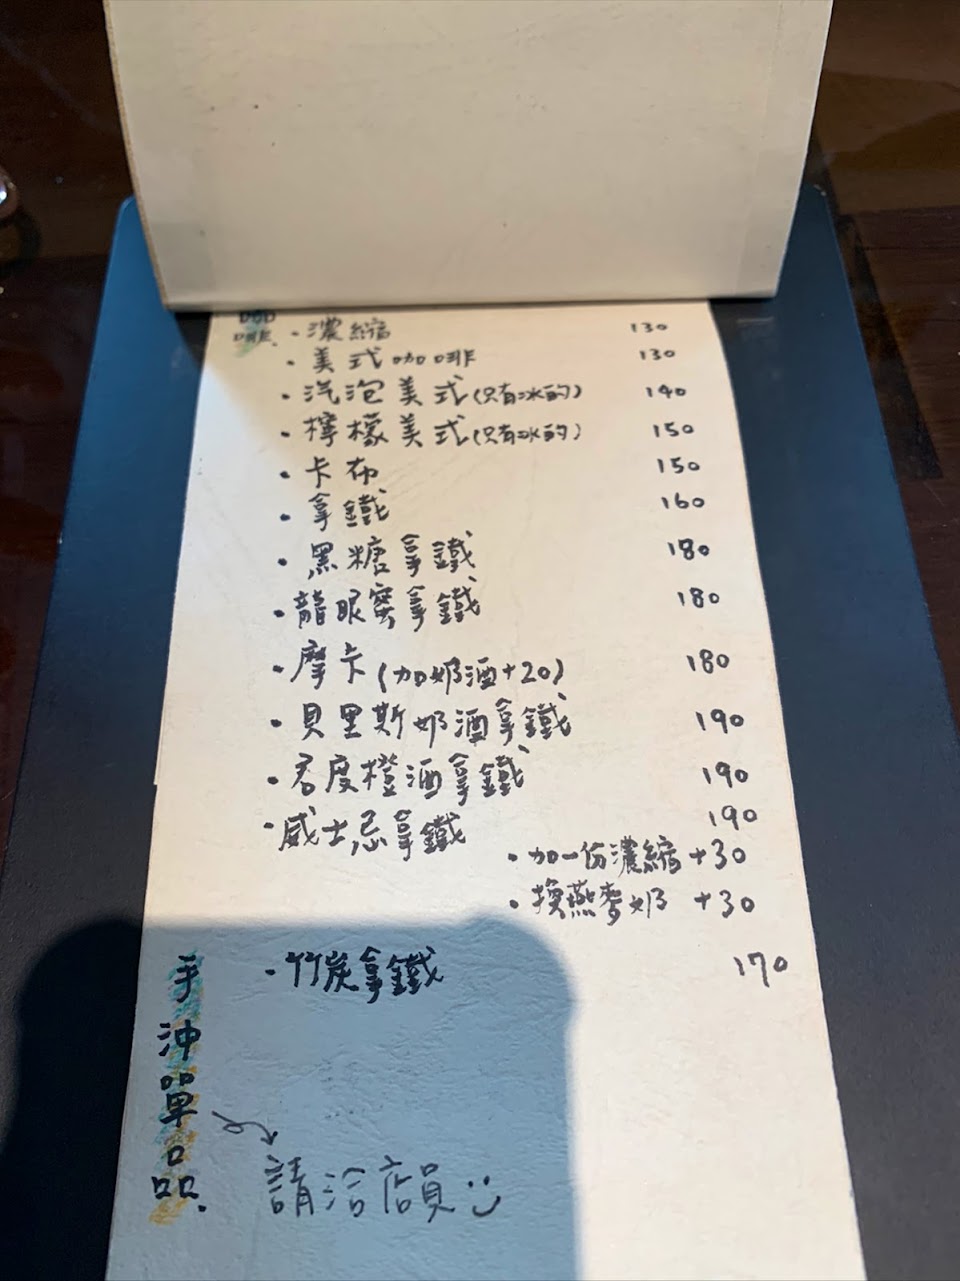 ・濃縮 130
・美式咖啡 130
・汽泡美式(只有冰的) 140
・檸檬美式(只有冰的) 150
・卡布 150
・拿鐵 160
・黑糖拿鐵 180
・龍眼蜜拿鐵 180
・摩卡(加奶酒+20) 180
・貝里斯奶酒拿鐵 190
・君度橙酒拿鐵 190
・威士忌拿鐵 190
・加一份濃縮 +30
・換燕麥奶 +30
・竹炭拿鐵 170
手沖單品.
請洽店員